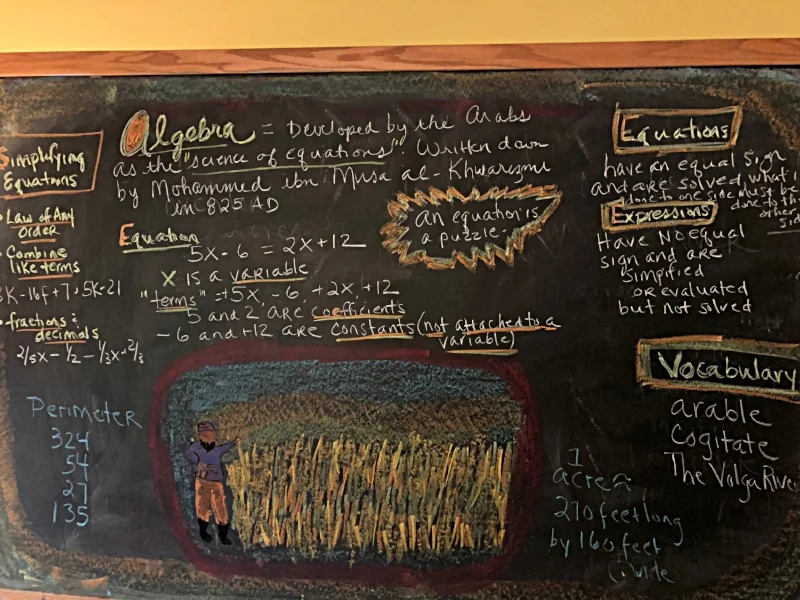 Simplifying
Equations
• Law of Any
Order
• Combine
like terms
8k-16f+7+5k-21
• fractions &
decimals
2/5x - 1/2 - 1/3x + 2/3
Perimeter
324
54
27
135
Algebra = Developed by the Arabs
as the "science of equations". Written down
by Mohammed ibn Musa al-Khwarezmi
in 825 AD
An equation is
a puzzle.
Equation
5x - 6 = 2x + 12
x is a variable
"terms" = 5x, -6, +2x, +12
5 and 2 are coefficients
-6 and +12 are constants (not attached to a
variable)
Equations
have an equal sign
and are solved, what is
done to one side must be
done to the
other
side
Expressions
Have No equal
sign and are
simplified
or evaluated
but not solved
Vocabulary
arable
Cogitate
The Volga River
1
acre ≈
270 feet long
by 160 feet
wide